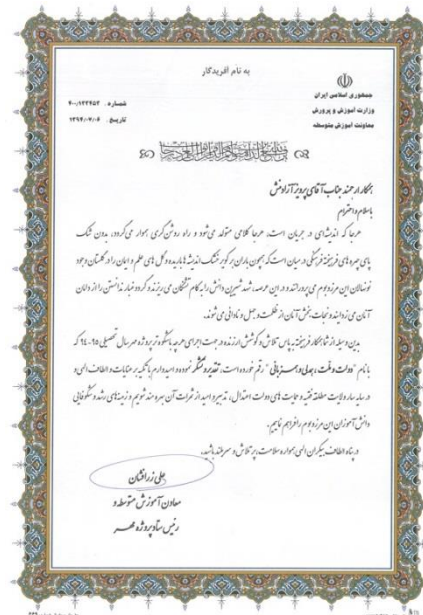 به نام آفریدگار
جمهوری اسلامی ایران
وزارت آموزش و پرورش
معاونت آموزش متوسطه
شماره: ۴۰۰/۱۳۳۴۵۳
تاریخ: ۱۳۹۴/۰۷/۰۶
همکار ارجمند جناب آقای پرویز آزادمنش
با سلام و احترام
هرجا که اندیشه‌ای در جریان است، هرجا کلامی متولد می‌شود و راه روشن‌گری هموار می‌گردد، بدون شک
پای چهره‌های فرهیخته فرهنگی در میان است که همچون باران بر کویر خشک اندیشه‌ها باریده و گل‌های علم و ایمان را در گلستان وجود
نونهالان این مرز و بوم می‌پرورانند و در این عرصه، شهد شیرین دانش را به کام تشنگان می‌ریزند و گرد و غبار ندانستن را از دامان
آنان می‌زدایند و نجات‌بخش آنان از ظلمت و جهل و نادانی می‌شوند.
بدین وسیله از شما همکار فرهیخته به پاس تلاش و کوشش ارزنده در جهت اجرای هرچه باشکوه‌تر پروژه مهر سال تحصیلی ۹۵-۹۴ که
با نام "دولت و ملت، همدلی و همزبانی" رقم خورده است، تقدیر و تشکر نموده و امیدوارم با تکیه بر عنایات و الطاف الهی و
در سایه‌سار ولایت مطلقه فقیه و حمایت‌های دولت اعتدال، تدبیر و امید از ثمرات آن بهره‌مند شویم و زمینه‌های رشد و شکوفایی
دانش‌آموزان این مرز و بوم را فراهم نماییم.
در پناه الطاف بیکران الهی همواره سلامت، پرتلاش و سرافراز باشید.
علی زرافشان
معاون آموزش متوسطه و
رئیس ستاد پروژه مهر